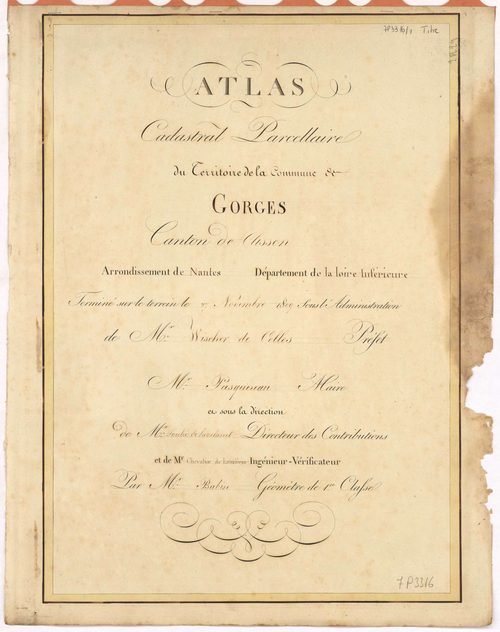 7P3316/1 Titre
ATLAS
Cadastral Parcellaire
du Territoire de la Commune de
GORGES
Canton de Clisson
Arrondissement de Nantes Département de la loire Inférieure
Terminé sur le terrein le Novembre Sous l'Administration
de Mr. Wischer de Celles Préfet
Mr. Pasquereau Maire
et sous la direction
de Mr. Directeur des Contributions
et de Mr. Chevalier de Ingénieur-Vérificateur
Par Mr. Babin Géomètre de 1re Classe
7P3316